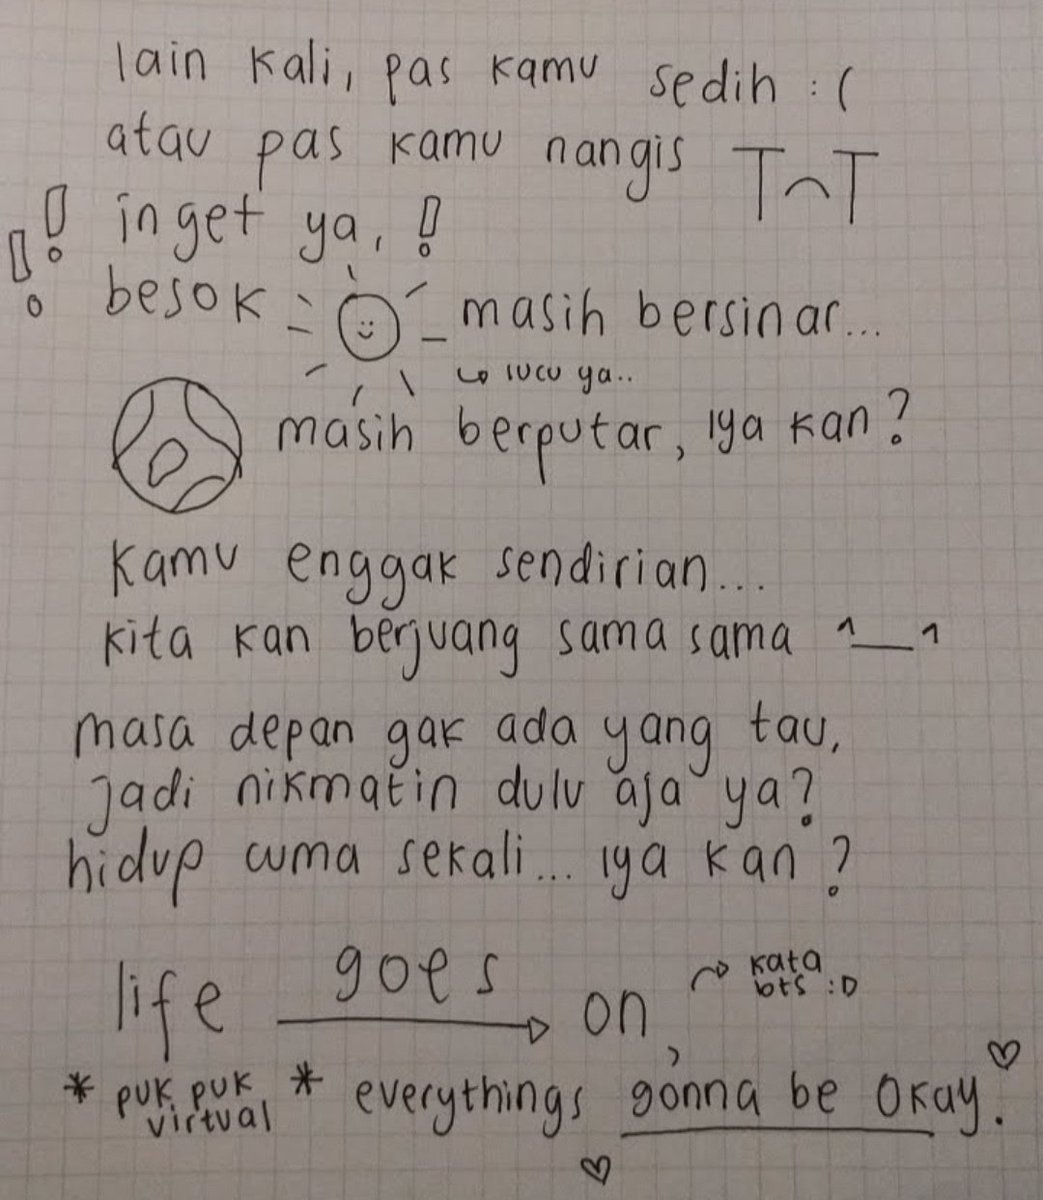 lain kali, pas kamu sedih :(
atau pas kamu nangis T⌢T
!! inget ya, !
besok masih bersinar...
↳ lucu ya..
masih berputar, iya kan?
kamu enggak sendirian...
kita kan berjuang sama sama ^__^
masa depan gak ada yang tau,
jadi nikmatin dulu aja ya?
hidup cuma sekali... iya kan?
life goes on, → kata
bts :D
* puk puk
virtual * everythings gonna be okay.